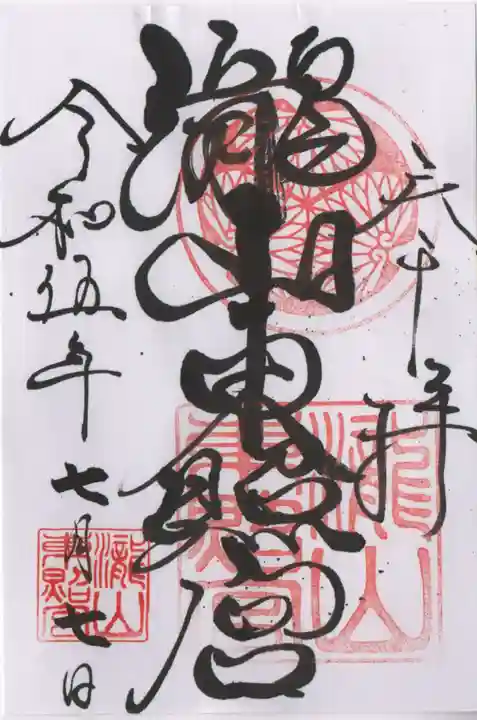 奉拝
瀧山東照宮
令和伍年
七月七日
瀧山
東照宮
瀧山
東照宮